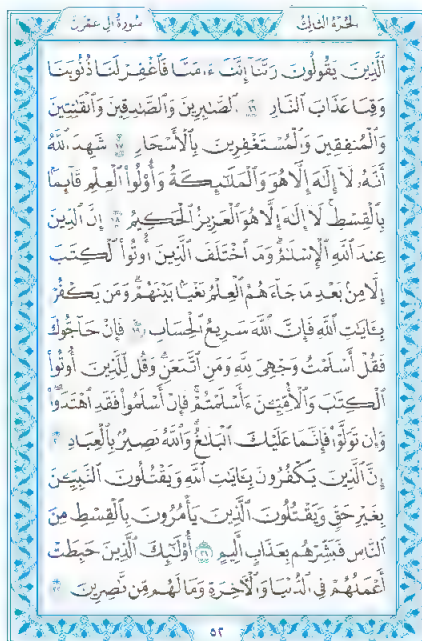 الجزء الثالث سورة آل عمران
ٱلَّذِينَ يَقُولُونَ رَبَّنَآ إِنَّنَآ ءَامَنَّا فَٱغْفِرْ لَنَا ذُنُوبَنَا
وَقِنَا عَذَابَ ٱلنَّارِ ١٦ ٱلصَّٰبِرِينَ وَٱلصَّٰدِقِينَ وَٱلْقَٰنِتِينَ
وَٱلْمُنفِقِينَ وَٱلْمُسْتَغْفِرِينَ بِٱلْأَسْحَارِ ١٧ شَهِدَ ٱللَّهُ
أَنَّهُۥ لَآ إِلَٰهَ إِلَّا هُوَ وَٱلْمَلَٰٓئِكَةُ وَأُو۟لُوا۟ ٱلْعِلْمِ قَآئِمًۢا
بِٱلْقِسْطِ لَآ إِلَٰهَ إِلَّا هُوَ ٱلْعَزِيزُ ٱلْحَكِيمُ ١٨ إِنَّ ٱلدِّينَ
عِندَ ٱللَّهِ ٱلْإِسْلَٰمُ وَمَا ٱخْتَلَفَ ٱلَّذِينَ أُوتُوا۟ ٱلْكِتَٰبَ
إِلَّا مِنۢ بَعْدِ مَا جَآءَهُمُ ٱلْعِلْمُ بَغْيًۢا بَيْنَهُمْ وَمَن يَكْفُرْ
بِـَٔايَٰتِ ٱللَّهِ فَإِنَّ ٱللَّهَ سَرِيعُ ٱلْحِسَابِ ١٩ فَإِنْ حَآجُّوكَ
فَقُلْ أَسْلَمْتُ وَجْهِىَ لِلَّهِ وَمَنِ ٱتَّبَعَنِ وَقُل لِّلَّذِينَ أُوتُوا۟
ٱلْكِتَٰبَ وَٱلْأُمِّيِّـۧنَ ءَأَسْلَمْتُمْ فَإِنْ أَسْلَمُوا۟ فَقَدِ ٱهْتَدَوا۟
وَّإِن تَوَلَّوْا۟ فَإِنَّمَا عَلَيْكَ ٱلْبَلَٰغُ وَٱللَّهُ بَصِيرٌۢ بِٱلْعِبَادِ ٢٠
إِنَّ ٱلَّذِينَ يَكْفُرُونَ بِـَٔايَٰتِ ٱللَّهِ وَيَقْتُلُونَ ٱلنَّبِيِّـۧنَ
بِغَيْرِ حَقٍّ وَيَقْتُلُونَ ٱلَّذِينَ يَأْمُرُونَ بِٱلْقِسْطِ مِنَ
ٱلنَّاسِ فَبَشِّرْهُم بِعَذَابٍ أَلِيمٍ ٢١ أُو۟لَٰٓئِكَ ٱلَّذِينَ حَبِطَتْ
أَعْمَٰلُهُمْ فِى ٱلدُّنْيَا وَٱلْءَاخِرَةِ وَمَا لَهُم مِّن نَّٰصِرِينَ ٢٢
٥٢